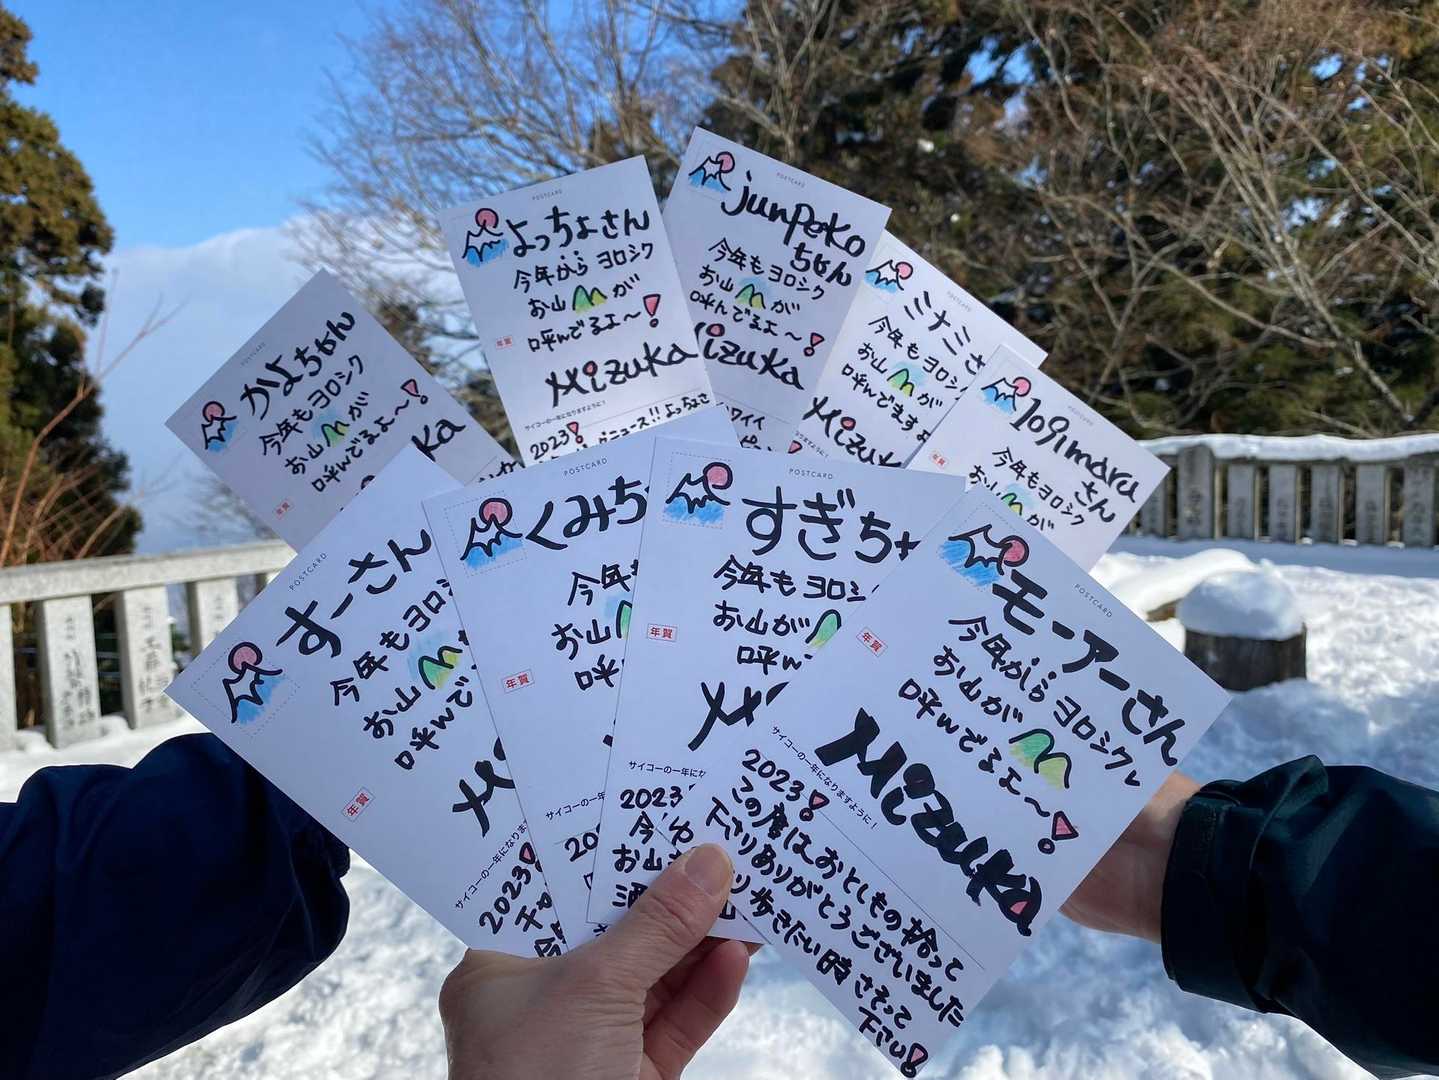 POSTCARD
かよちゃん
今年もヨロシク
お山が
呼んでるよ〜!
ka
年賀
POSTCARD
よっちょさん
今年から ヨロシク
お山 が
呼んでるよ〜!
Mizuka
年賀
サイコーの一年になりますように!
2023!
ニュース!! よっちょさ
POSTCARD
junpeko
ちゃん
今年もヨロシク
お山 が
呼んでるよ〜!
izuka
POSTCARD
ミナミさ
今年もヨロシ
お山 が
呼んでますよ
Mizuka
POSTCARD
1091maru
さん
今年もヨロシク
お山 が
年賀
POSTCARD
すーさん
今年もヨロシ
お山
呼んで
年賀
サイコーの一年になりま
2023!
POSTCARD
くみち
今年
お山
呼ん
年賀
サイコーの一年に
20
POSTCARD
すぎち
今年も ヨロシ
お山が
呼ん
年賀
サイコーの一年にな
2023
お山
POSTCARD
モーアーさん
今年から ヨロシク
お山が
呼んでるよ〜!
Mizuka
年賀
サイコーの一年になりますように!
2023!
この度は、おとしもの拾って
下さりありがとうございました
歩きたい時 さそって
下さい!